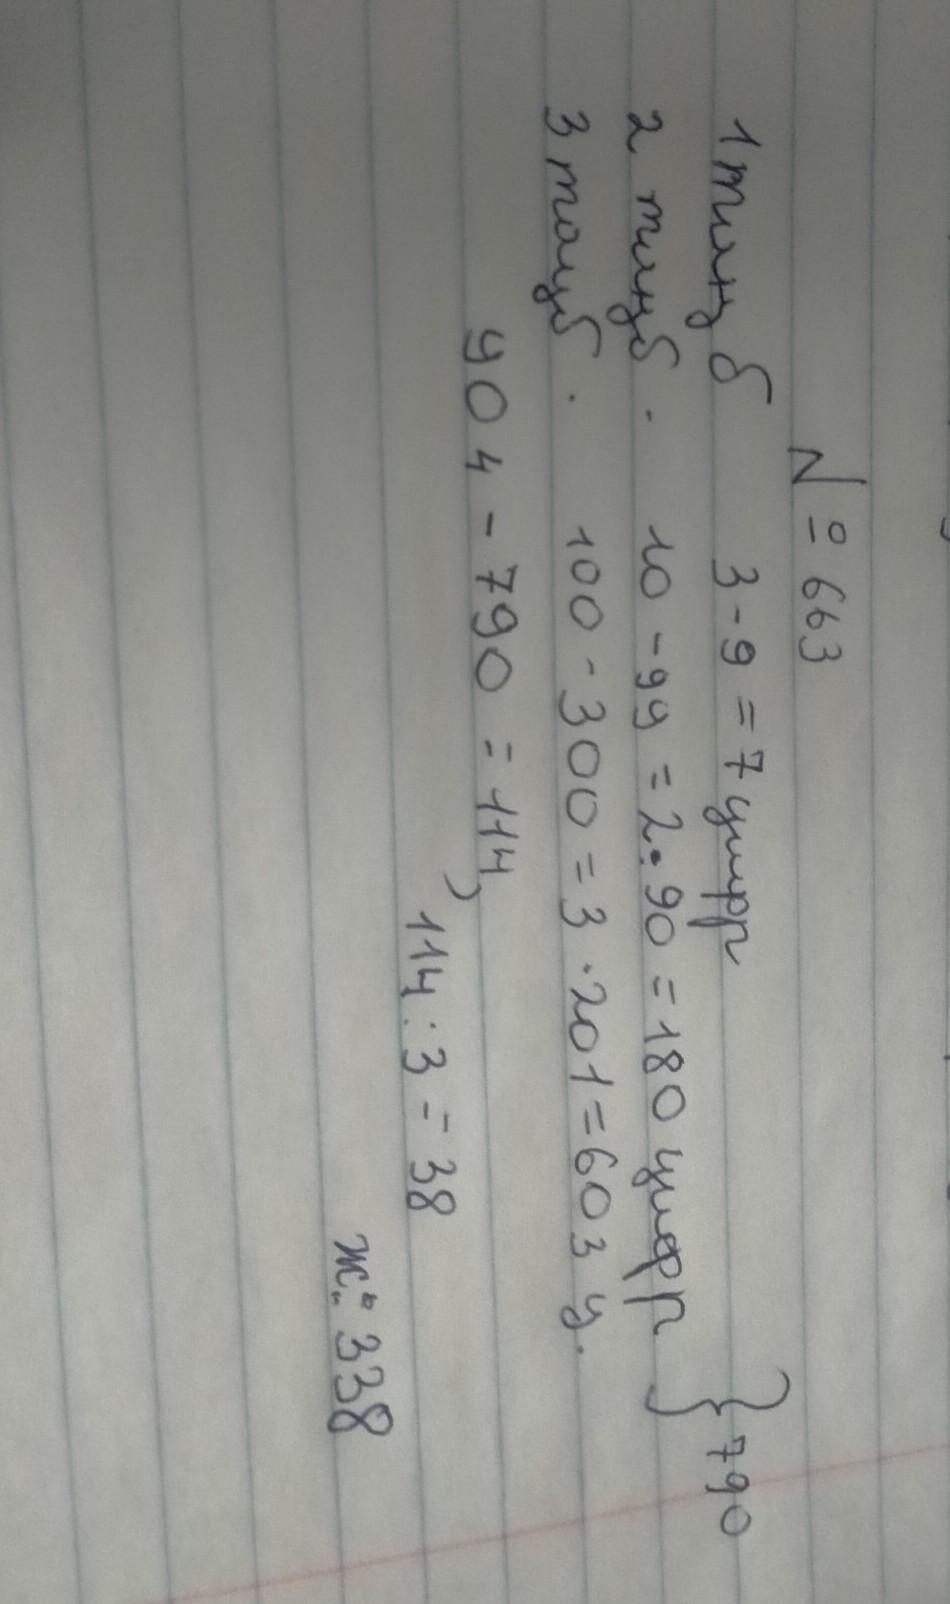 № 663
1 таңб 3-9 = 7 цифр
2 таңб. 10-99 = 2·90 = 180 цифр } 790
3 таңб. 100-300 = 3·201=603 ц.
904-790 = 114,
114:3 = 38
Ж: 338